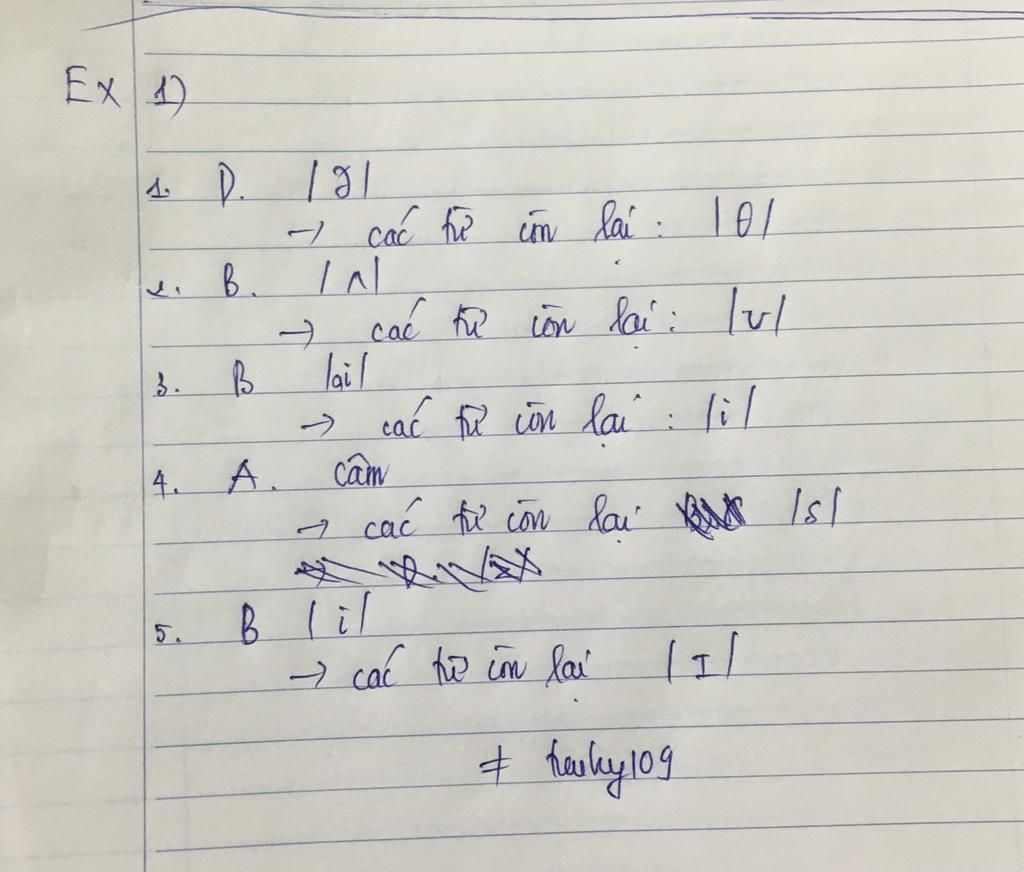 Ex 1)
1. D. /ð/
→ các từ còn lại: /θ/
2. B. /ʌ/
→ các từ còn lại: /ʊ/
3. B /ai/
→ các từ còn lại: /i/
4. A. câm
→ các từ còn lại /s/
5. B /i/
→ các từ còn lại /ɪ/